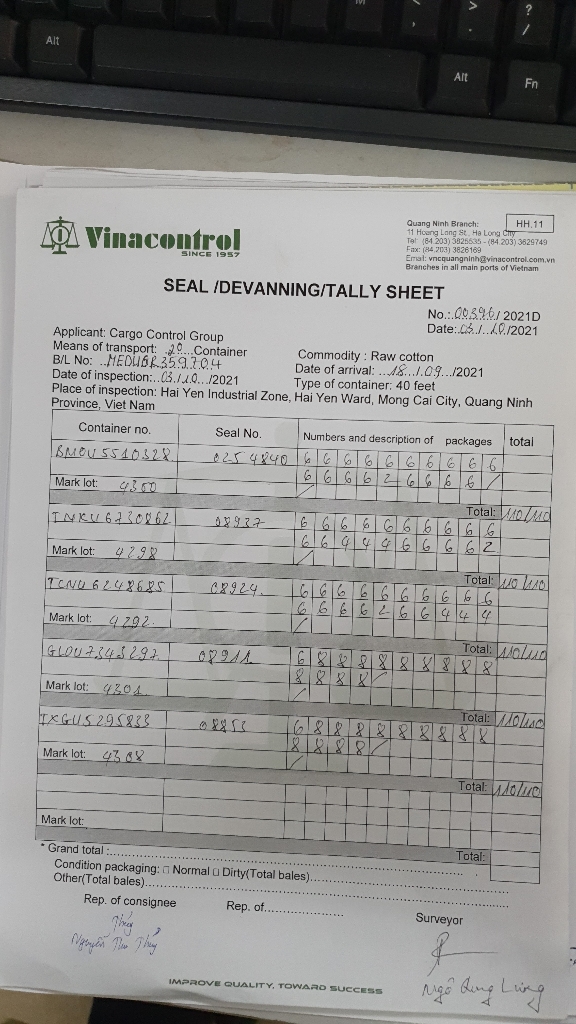 Alt
Alt
Fn
?
/
HH.11
Vinacontrol
SINCE 1957
Quang Ninh Branch:
11 Hoang Long St., Ha Long City
Tel: (84.203) 3825535 - (84.203) 3629749
Fax: (84.203) 3826169
Email: vncquangninh@vinacontrol.com.vn
Branches in all main ports of Vietnam
SEAL /DEVANNING/TALLY SHEET
No.: 00396/ 2021D
Date: 03./..10/2021
Applicant: Cargo Control Group
Means of transport: .20...Container
Commodity : Raw cotton
B/L No: ..MEDUBR359704
Date of arrival: ...18.../.09.../2021
Date of inspection:..03/10.../2021
Type of container: 40 feet
Place of inspection: Hai Yen Industrial Zone, Hai Yen Ward, Mong Cai City, Quang Ninh
Province, Viet Nam
Container no. Seal No. Numbers and description of packages total
BMOU5510328 0254840 6 6 6 6 6 6 6 6 6 6
6 6 6 6 2 6 6 6 6 /
Mark lot: 4300 /
Total: 110/110
08937 6 6 6 6 6 6 6 6 6 6
6 6 4 4 4 6 6 6 6 2
Mark lot: 4298 /
Total: 110/110
TCNU6248685 08924 6 6 6 6 6 6 6 6 6 6
6 6 6 6 2 6 6 4 4 4
Mark lot: 4292 /
Total: 110/110
08911 6 8 8 8 8 8 8 8 8 8
8 8 8 8 /
Mark lot: 4301 /
Total: 110/110
TXGU5295833 08853 6 8 8 8 8 8 8 8 8 8
8 8 8 8 /
Mark lot: 4308 /
Total: 110/110
Mark lot:
Total:
* Grand total :
Condition packaging: □ Normal □ Dirty(Total bales)
Other(Total bales)
Rep. of consignee Rep. of Surveyor
Thúy
Nguyễn Thu Thúy
IMPROVE QUALITY, TOWARD SUCCESS